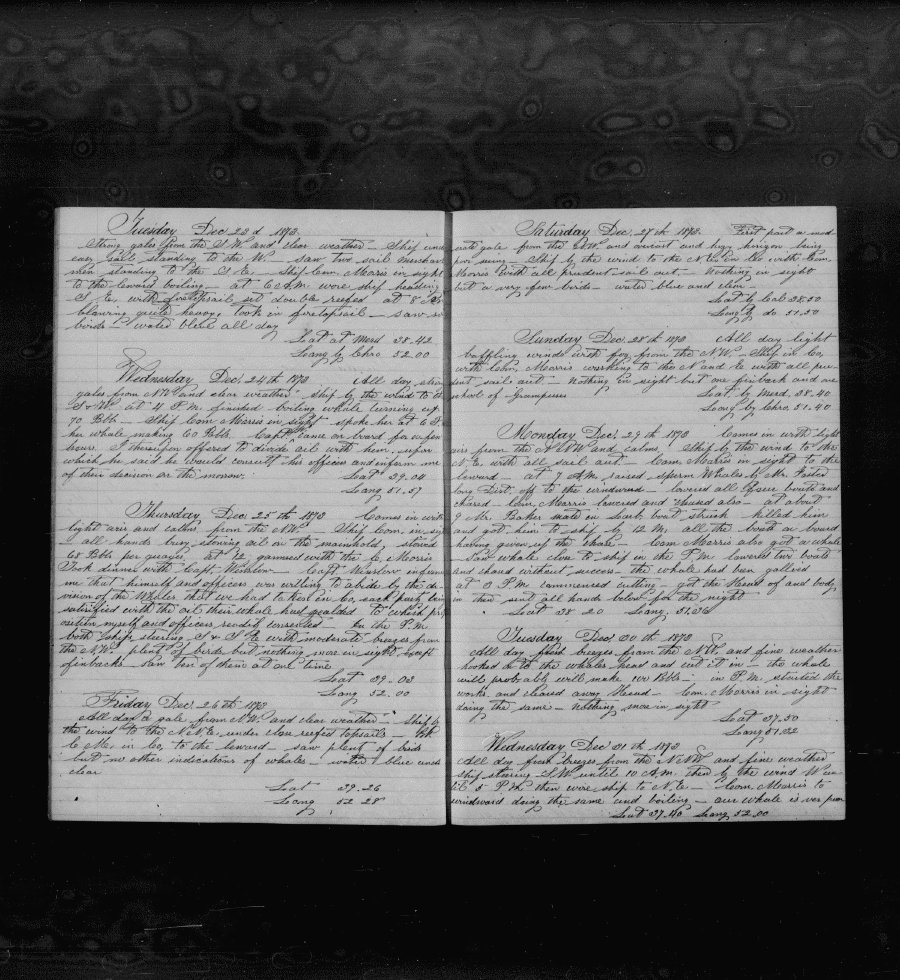 Tuesday Dec 23d 1873.
Strong gales from the S.W. and clear weather - Ship under
easy sail standing to the W. saw two sail merchant
men standing to the S.E. - Ship Com. Morris in sight
to the leward boiling - at 6 A.M. wore ship heading
S.E. with foretopsail set double reefed at 8
blowing quite heavy took in foretopsail - saw no
birds - water blue all day
Lat at Merd 38.42
Long by Chro 52.00
Wednesday Dec. 24th 1873 All day strong
gales from NW and clear weather - ship by the wind to the
S.W. at 4 P.M. finished boiling whale turning up
70 Bbls - Ship Com Morris in sight - spoke her at 6 P
her whale making 60 Bbls. Capt came on board for a few
hours. I thereupon offered to divide oil with them, upon
which he said he would consult his officers and inform me
of their decision on the morrow. Lat 39.04
Long 51.57
Thursday Dec. 25th 1873 Comes in with
light airs and calms from the NW Ship Com. in sight
- all hands busy stowing oil in the mainhold, stowed
68 Bbls per guages at 12 gammed with the C. Morris
Took dinner with Capt. Winslow - Capt Winslow informed
me that himself and officers was willing to abide by the de-
vision of the Whales that we had taken in Co, each party being
satisfied with the oil their whale had yealded to which pro
osition myself and officers readily consented In the P.M.
both Ships steering S & S.E. with moderate breezes from
the N.W. plent of birds but nothing more in sight except
finbacks saw ten of them at one time
Lat 39.03
Long 52.00
Friday Dec. 26th 1873
All day a gale from N.W. and clear weather - Ship by
the wind to the N.E. under close reefed topsails -
C. M. in Co, to the leward - saw plent of birds
but no other indications of whales - water blue and
clear
Lat 39.26
Long 52 28
Saturday Dec. 27th 1873. First part a mod-
erate gale from the NW. and and hazy horizon being
poor seeing - Ship by the wind to the N.E. in Co with Com.
Morris with all prudent sail out - Nothing in sight
but a very few birds - water blue and clear -
Lat by Cal 38.50
Long by do. 51.50
Sunday Dec. 28th 1873 All day light
baffling winds with fog from the NW. Ship in Co,
with Com. Morris working to the N and E with all pru-
dent sail out - Nothing in sight but one finback and one
school of Grampuses Lat by Merd. 38.40
Long by Chro. 51.40
Monday Dec. 29th 1873 Comes in with light
airs from the NW and calms. Ship by the wind to the
N.E. with all sail out. Com. Morris in sight to the
leward - at 7 A.M. raised Sperm Whales by Mr. Foster
long Dist. off to the windward - lowered all four boats and
chased - Com. Morris lowered and chased also - at about
9 Mr. Baker mate in Larb. boat struck killed him
and got him to ship by 12 M. all the boats on board
having given up the chase - Com Morris also got a whale
- saw whale close to ship in the P.M. lowered two boats
and chased without success - the whale had been gallied
at 3 P.M. commenced cutting - got the Head of and body
in then sent all hands below for the night
Lat 38 20 Long. 51.26
Tuesday Dec. 30th 1873
All day fresh breezes from the NW. and fine weather
hooked on to the whales head and cut it in - the whale
will probably will make 100 Bbls - in P.M. started the
works and cleared away Head - Com. Morris in sight
doing the same - Nothing more in sight
Lat 37.50
Long 51.32
Wednesday Dec 31th 1873
All day fresh breezes from the NNW and fine weather
ship steering S.W. until 10 A.M. then by the wind W un-
til 5 P.M. then wore ship to N.E. - Com. Morris to
windward doing the same and boiling - our whale is very poor
Lat 37.40 Long 52.00